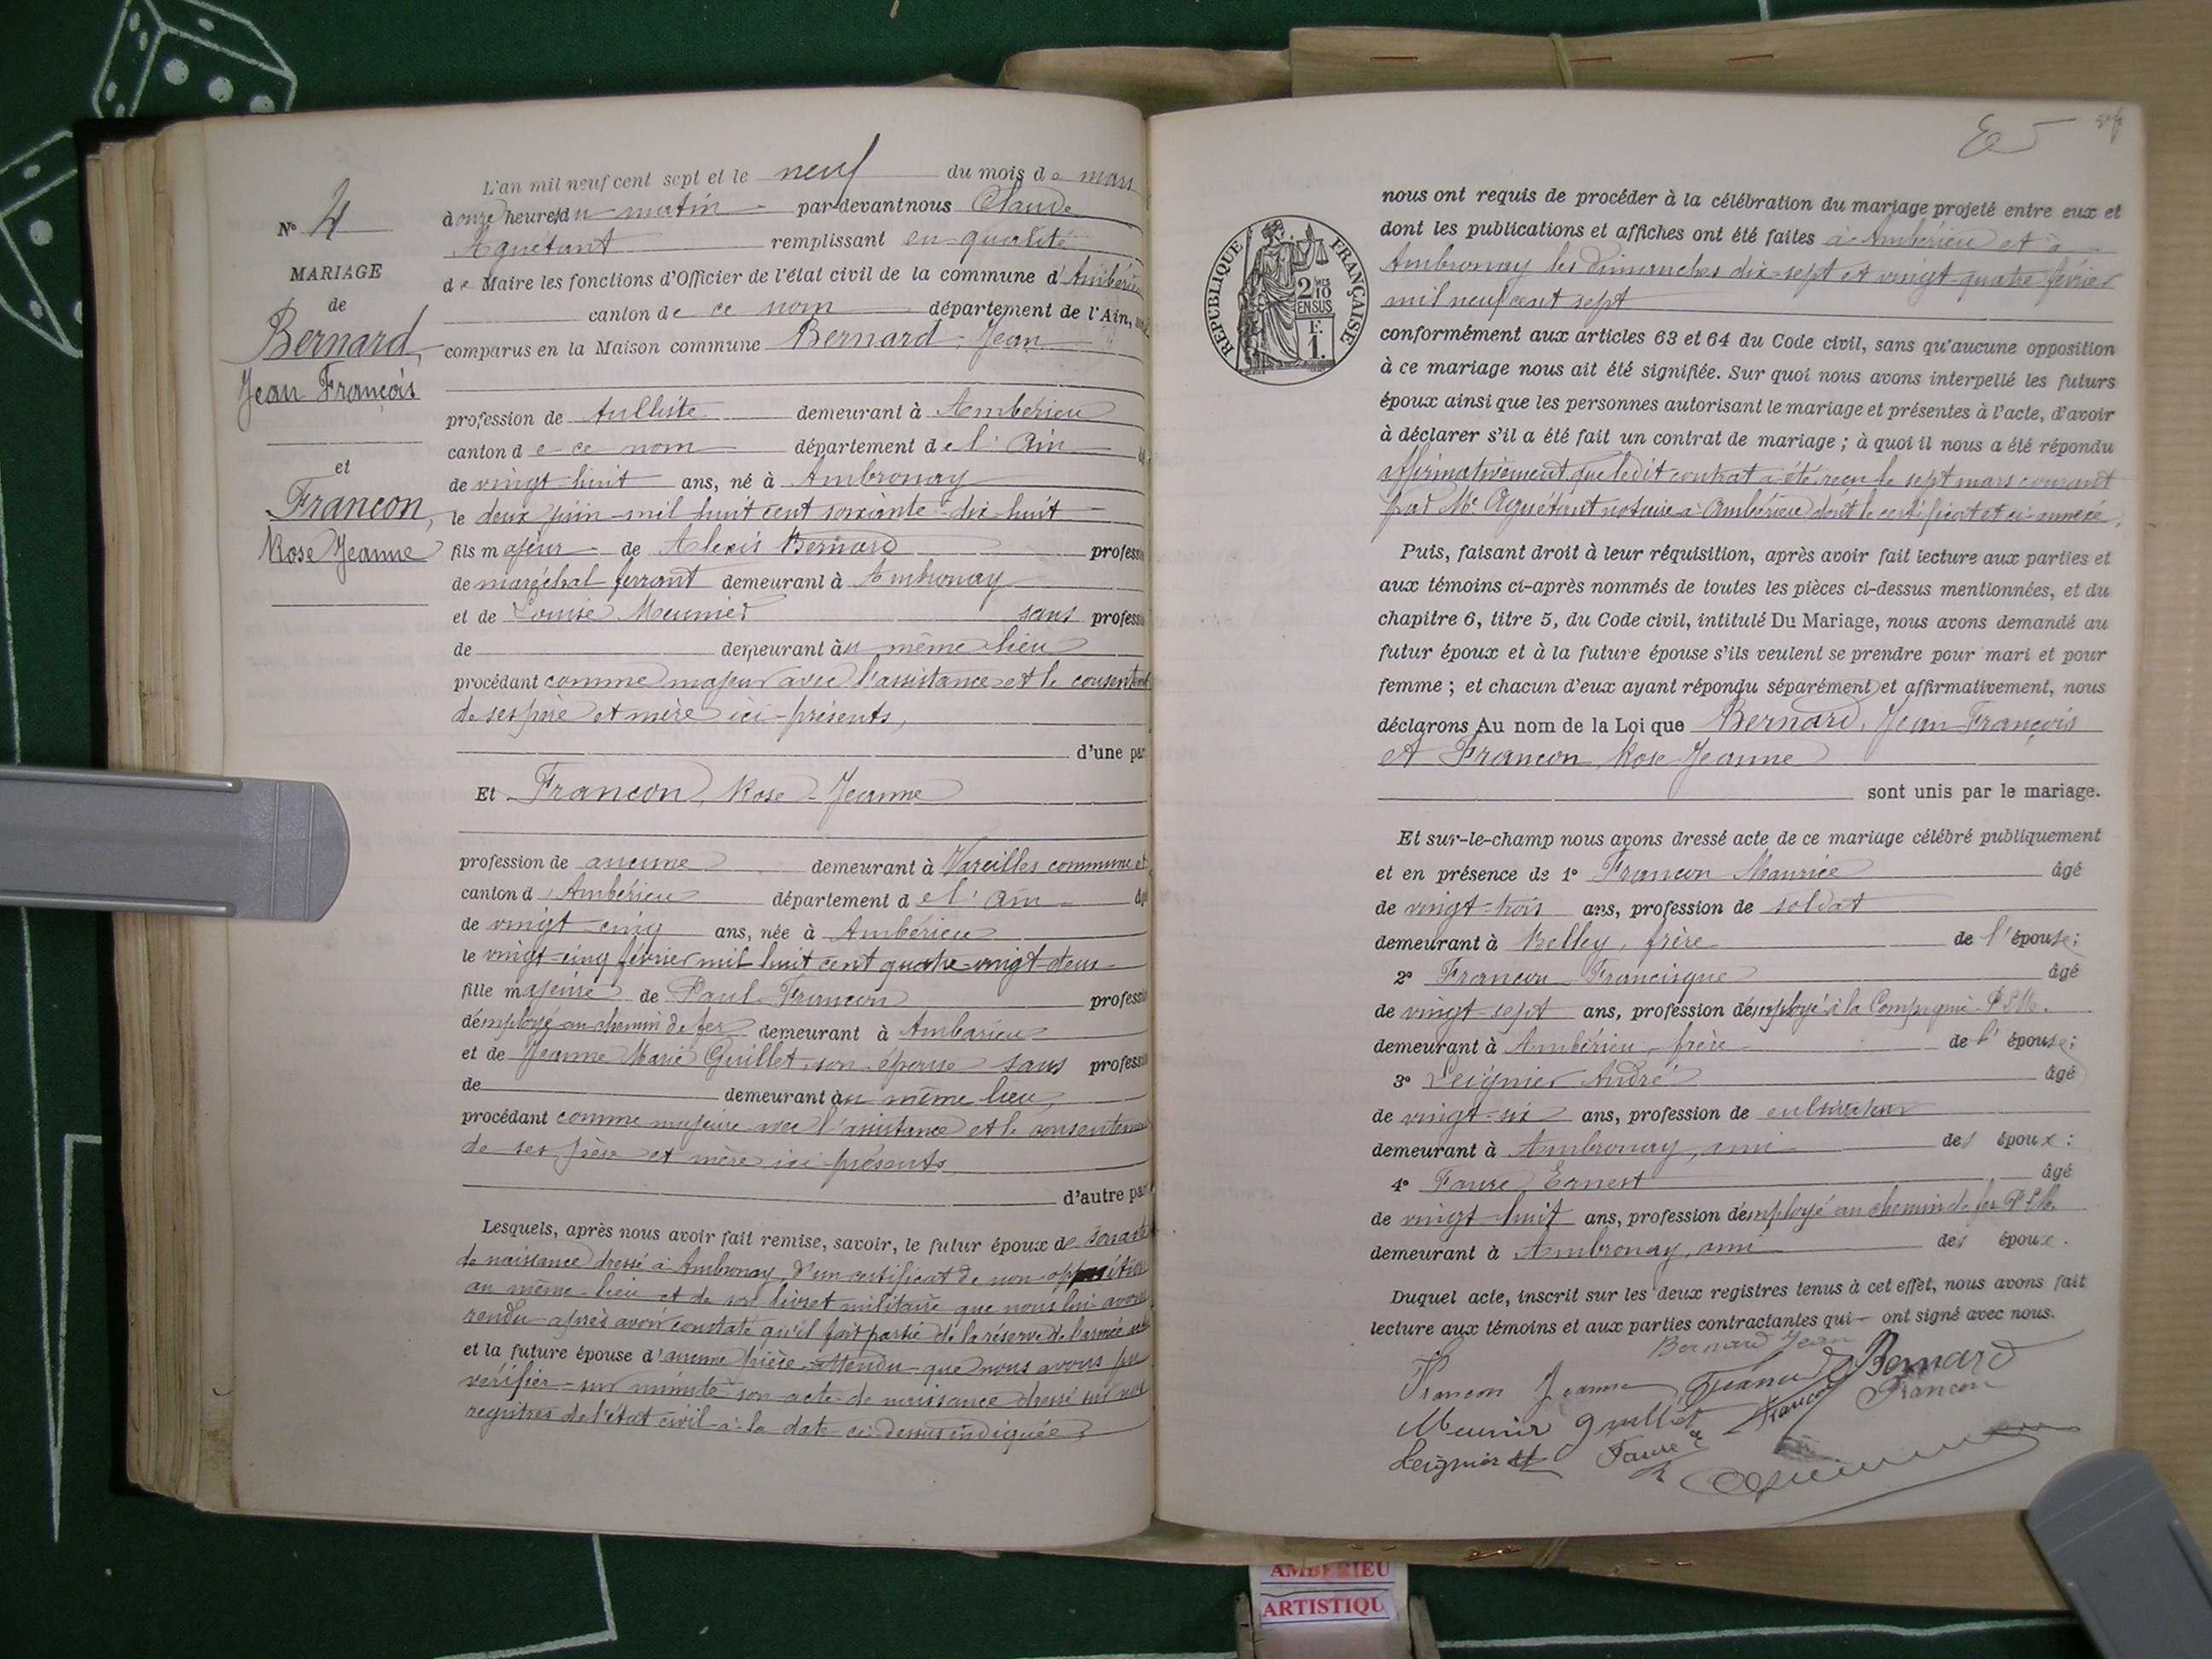 N° 4
MARIAGE
de
Bernard,
Jean François
et
Francon,
Rose Jeanne
L'an mil neuf cent sept et le neuf du mois de mars
à onze heures du matin par-devant nous Claude
Aguétant remplissant en qualité
de Maire les fonctions d'Officier de l'état civil de la commune d'Ambérieu
canton de ce nom département de l'Ain,
comparus en la Maison commune Bernard, Jean
profession de demeurant à Ambérieu
canton de ce nom département de l'Ain
de vingt-huit ans, né à Ambronay
le deux juin mil huit cent soixante-dix-huit
fils majeur de Alexis Bernard profess
de maréchal ferrant demeurant à Ambronay
et de Louise Meunier sans profess
de demeurant au même lieu
procédant comme majeur avec l'assistance et le consentement
de ses père et mère ici présents,
d'une par
Et Francon, Rose-Jeanne
profession de aucune demeurant à Vareilles commune et
canton d'Ambérieu département de l'Ain
de vingt-cinq ans, née à Ambérieu
le vingt-cinq février mil huit cent quatre-vingt-deux
fille majeure de Paul Francon professi
d'employé au chemin de fer demeurant à Ambérieu
et de Jeanne Marie Guillet, son épouse sans professi
de demeurant au même lieu,
procédant comme majeure avec l'assistance et le consentement
de ses père et mère ici présents
d'autre par
Lesquels, après nous avoir fait remise, savoir, le futur époux de son acte
de naissance dressé à Ambronay, d'un certificat de non-opposition
au même lieu et de son livret militaire que nous lui avons
rendu après avoir constaté qu'il fait partie de la réserve de l'armée
et la future épouse d'aucune pièce attendu que nous avons pu
vérifier sur minute son acte de naissance dressé sur nos
registres de l'état civil à la date ci-dessus indiquée
RÉPUBLIQUE FRANÇAISE
2/10
EN SUS
F.
1.
nous ont requis de procéder à la célébration du mariage projeté entre eux et
dont les publications et affiches ont été faites à Ambérieu et à
Ambronay les dimanches dix-sept et vingt-quatre février
mil neuf cent sept
conformément aux articles 63 et 64 du Code civil, sans qu'aucune opposition
à ce mariage nous ait été signifiée. Sur quoi nous avons interpellé les futurs
époux ainsi que les personnes autorisant le mariage et présentes à l'acte, d'avoir
à déclarer s'il a été fait un contrat de mariage ; à quoi il nous a été répondu
affirmativement que ledit contrat a été reçu le sept mars courant
par Me Aguétant notaire à Ambérieu dont le certificat est ci-annexé,
Puis, faisant droit à leur réquisition, après avoir fait lecture aux parties et
aux témoins ci-après nommés de toutes les pièces ci-dessus mentionnées, et du
chapitre 6, titre 5, du Code civil, intitulé Du Mariage, nous avons demandé au
futur époux et à la future épouse s'ils veulent se prendre pour mari et pour
femme ; et chacun d'eux ayant répondu séparément et affirmativement, nous
déclarons Au nom de la Loi que Bernard, Jean-François
et Francon Rose Jeanne
sont unis par le mariage.
Et sur-le-champ nous avons dressé acte de ce mariage célébré publiquement
et en présence de 1° Francon Maurice âgé
de vingt-trois ans, profession de soldat
demeurant à Belley, frère de l'épouse ;
2° Francon Francisque âgé
de vingt-sept ans, profession d'employé à la Compagnie P.L.M.
demeurant à Ambérieu, frère de l'épouse ;
3° Leignier André âgé
de vingt-six ans, profession de cultivateur
demeurant à Ambronay, ami des époux :
4° Faure Ernest âgé
de vingt-huit ans, profession d'employé au chemin de fer P.L.M.
demeurant à Ambronay, ami des époux.
Duquel acte, inscrit sur les deux registres tenus à cet effet, nous avons fait
lecture aux témoins et aux parties contractantes qui ont signé avec nous.
Bernard Jean
Francon Jeanne Bernard
Francon Francon
Meunier Guillet
Leignier A Faure E
AMBERIEU
ARTISTIQU